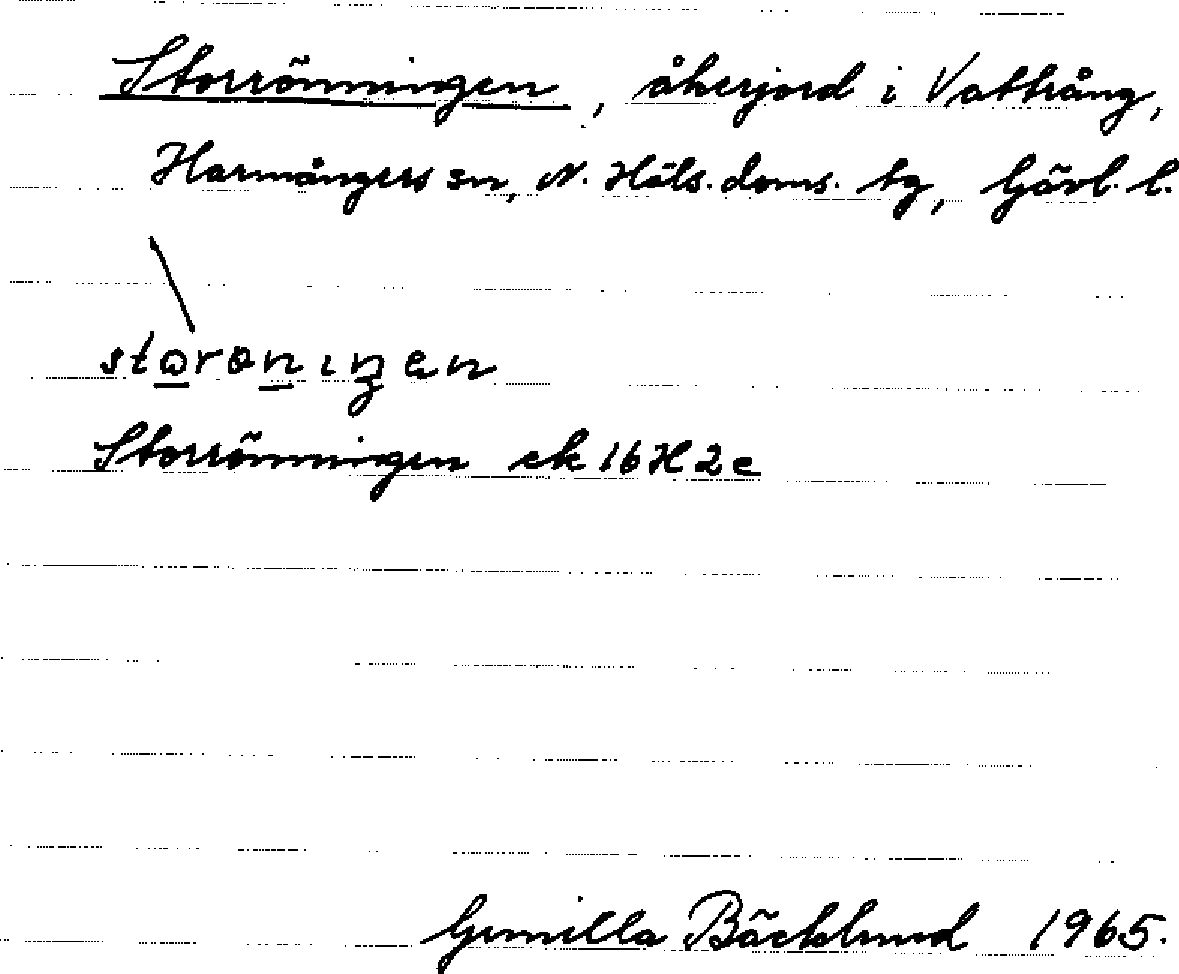 Storrönningen, åkerjord i Vattrång,
Harmångers sn, N. Häls. doms. tg, Gävl. l.
storoniŋen
Storrönningen ek 16H2e
Gunilla Bäcklund 1965.